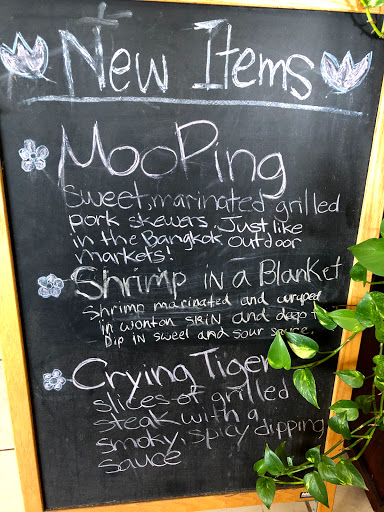 New Items
MooPing
Sweet, marinated grilled
pork skewers. Just like
in the Bangkok outdoor
markets!
Shrimp in a Blanket
Shrimp marinated and wraped
in wonton skin and deep f
Dip in sweet and sour sauce.
Crying Tiger
slices of grilled
steak with a
smoky, spicy dipping
sauce